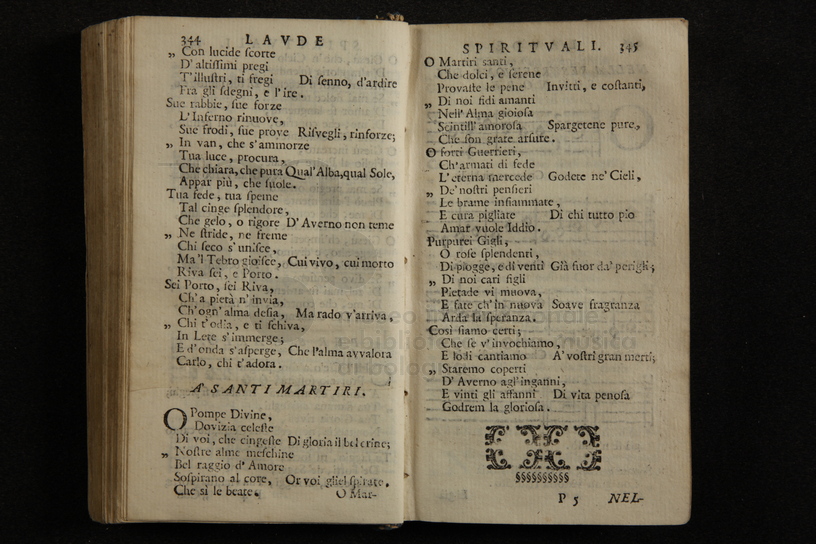 344 LAVDE
„ Con lucide ſcorte
D'altiſſimi pregi
T'illuſtri, ti fregi Di ſenno, d'ardire
Fra gli ſdegni, e l'ire.
Sue rabbie, ſue forze
L'Inferno rinuove,
Sue frodi, ſue prove Riſvegli, rinforze;
„ In van, che s'ammorze
Tua luce, procura,
Che chiara, che pura Qual'Alba, qual Sole,
Appar più, che ſuole.
Tua fede, tua ſpeme
Tal cinge ſplendore,
Che gelo, o rigore D'Averno non teme
„ Ne ſtride, ne freme
Chi ſeco s'uniſce,
Ma'l Tebro gioiſce, Cui vivo, cui morto
Riva ſei, e Porto.
Sei Porto, ſei Riva,
Ch'a pietà n'invia,
Ch'ogn'alma deſia, Ma rado v'arriva,
„ Chi t'odia, e ti ſchiva,
In Lete s'immerge;
E d'onda s'aſperge, Che l'alma avvalora
Carlo, chi t'adora.
A' SANTI MARTIRI.
O Pompe Divine,
Dovizia celeſte
Di voi, che cingeſte Di gloria il bel crine;
„ Noſtre alme meſchine
Bel raggio d'Amore
Soſpirano al core, Or voi gliel ſpirate,
Che sì le beate.
O Mar-
SPIRITVALI. 345
O Martiri santi,
Che dolci, e ſerene
Provaſte le pene Invitti, e coſtanti,
„ Di noi fidi amanti
Nell'Alma gioioſa
Scintill'amoroſa Spargetene pure,
Che ſon grate arſure.
O forti Guerrieri,
Ch'armati di fede
L'eterna mercede Godete ne'Cieli,
„ De'noſtri penſieri
Le brame infiammate,
E cura pigliate Di chi tutto pio
Amar vuole Iddio.
Purpurei Gigli,
O roſe ſplendenti,
Di piogge, e di venti Già fuor da'perigli;
„ Di noi cari figli
Pietade vi muova,
E fate ch'in nuova Soave fragranza
Arda la ſperanza.
Così ſiamo certi;
Che ſe v'invochiamo,
E lodi cantiamo A'voſtri gran merti;
„ Staremo coperti
D'Averno agl'inganni,
E vinti gli affanni Di vita penoſa
Godrem la glorioſa.
§§§§§§§§§§
P 5 NEL-